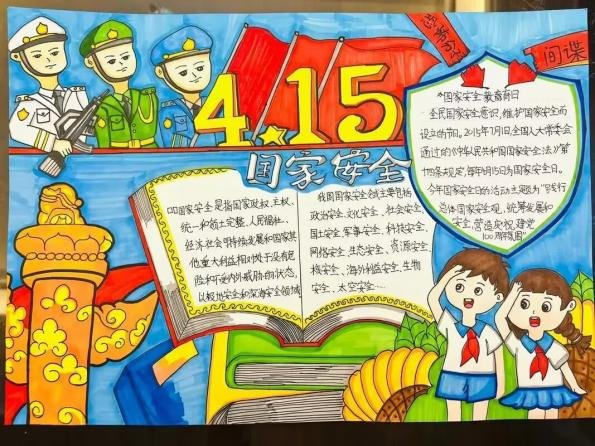 恐怖分子
间谍
4.15
国家安全
国家安全是指国家政权、主权、
统一和领土完整、人民福祉、
经济社会可持续发展和国家其
他重大利益相对处于没有危
险和不受内外威胁的状态,
以及
安全和深海安全领域
我国国家安全
主要包括
政治安全、文化安全、社会安全、
国土安全、军事安全、科技安全、
网络安全、生态安全、资源安全、
核安全、海外利益安全、生物
安全、太空安全
国家安全教育
日
全民国家安全意识,维护国家安全而
设立的节日。2015年7月1日,全国人大常委会
通过的《中华人民共和国国家安全法》第
十四条规定,每年4月15日为国家安全日。
今年国家安全日的活动主题为“践行
总体国家安全观,统筹发展和
安全,营造庆祝建党
100周年
氛围”